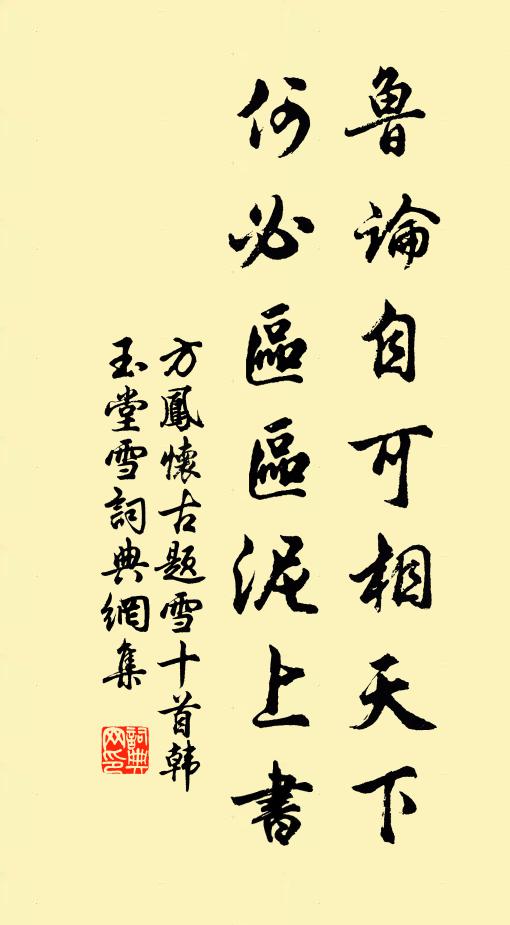 鲁論自可相天下
何必區區泥上書
方鳳懷古題雪十首韩
玉堂雪詞典網集
詞典网印